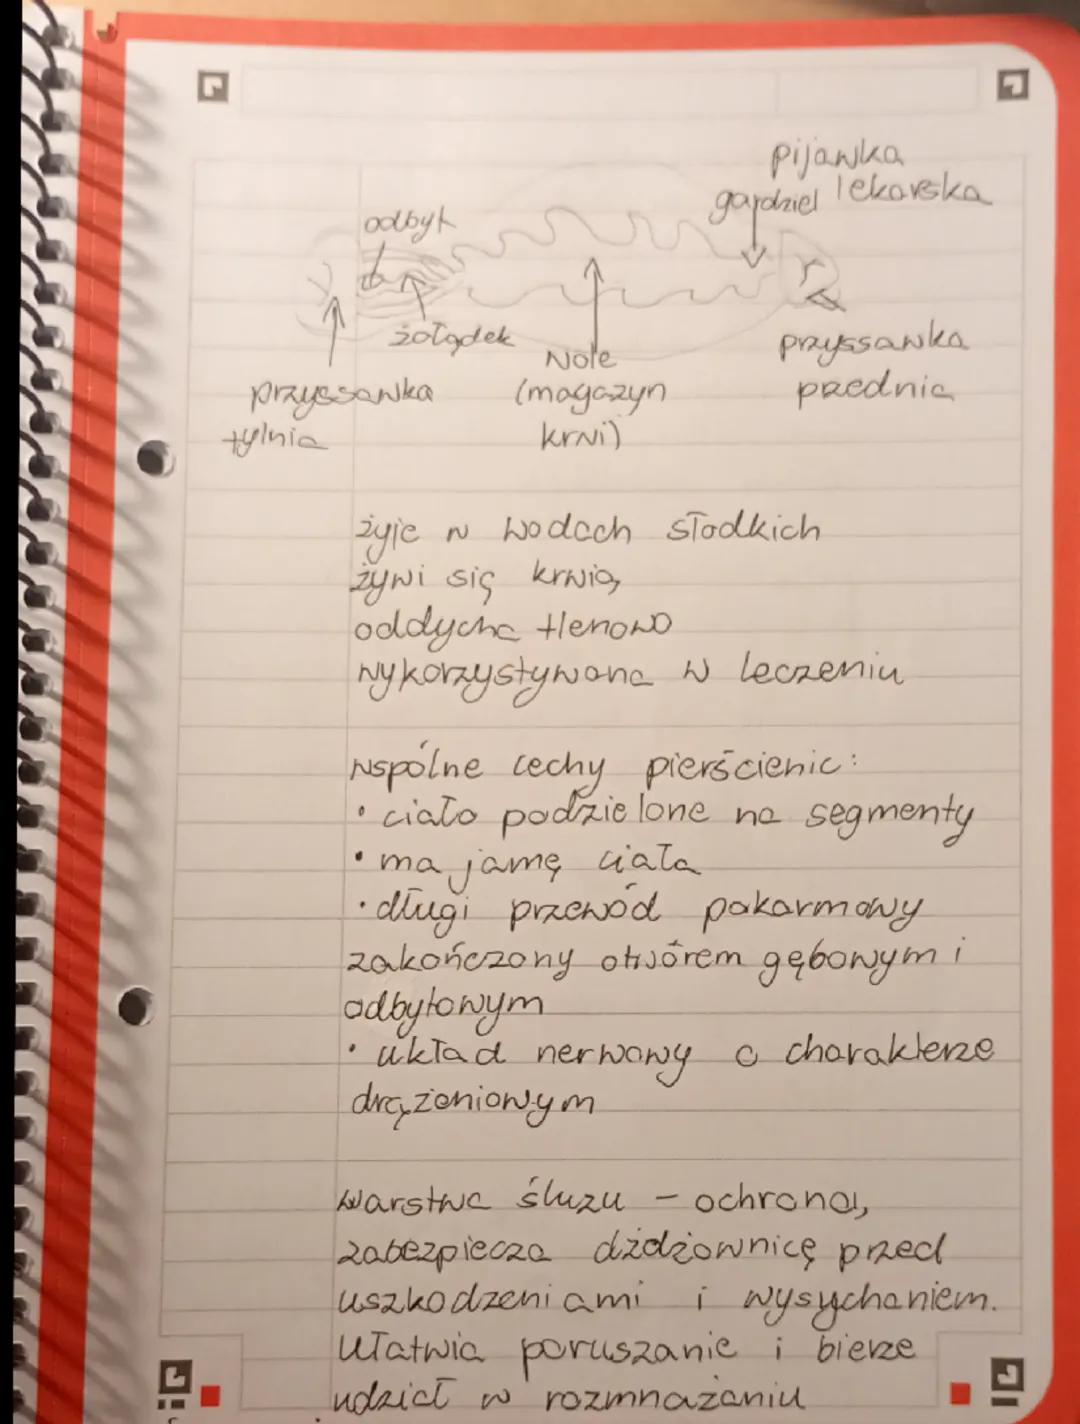 pijawka
lekarska
gardziel
odbyt
żołądek
Wole
(magazyn
krwi)
przyssawka
przednia
przyssawka
tylnia
żyje w wodach słodkich
żywi się krwią
oddycha tlenowo
wykorzystywana w leczeniu
wspólne cechy pierścienic:
• ciało podzielone na segmenty
• ma jamę ciała
• długi przewód pokarmowy
zakończony otwórem gębowym i
odbytowym
• układ nerwowy o charakterze
drążeniowym
warstwa śluzu - ochrona,
zabezpiecza dżdżownicę przed
uszkodzeniami i wysychaniem.
Ułatwia poruszanie i bierze
udział w rozmnażaniu